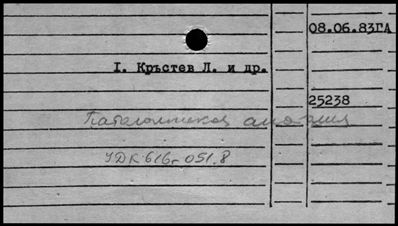 08.06.83ГА
I. Кръстев Л. и др.
25238
Патологическа анатомия
УДК 616-051.8